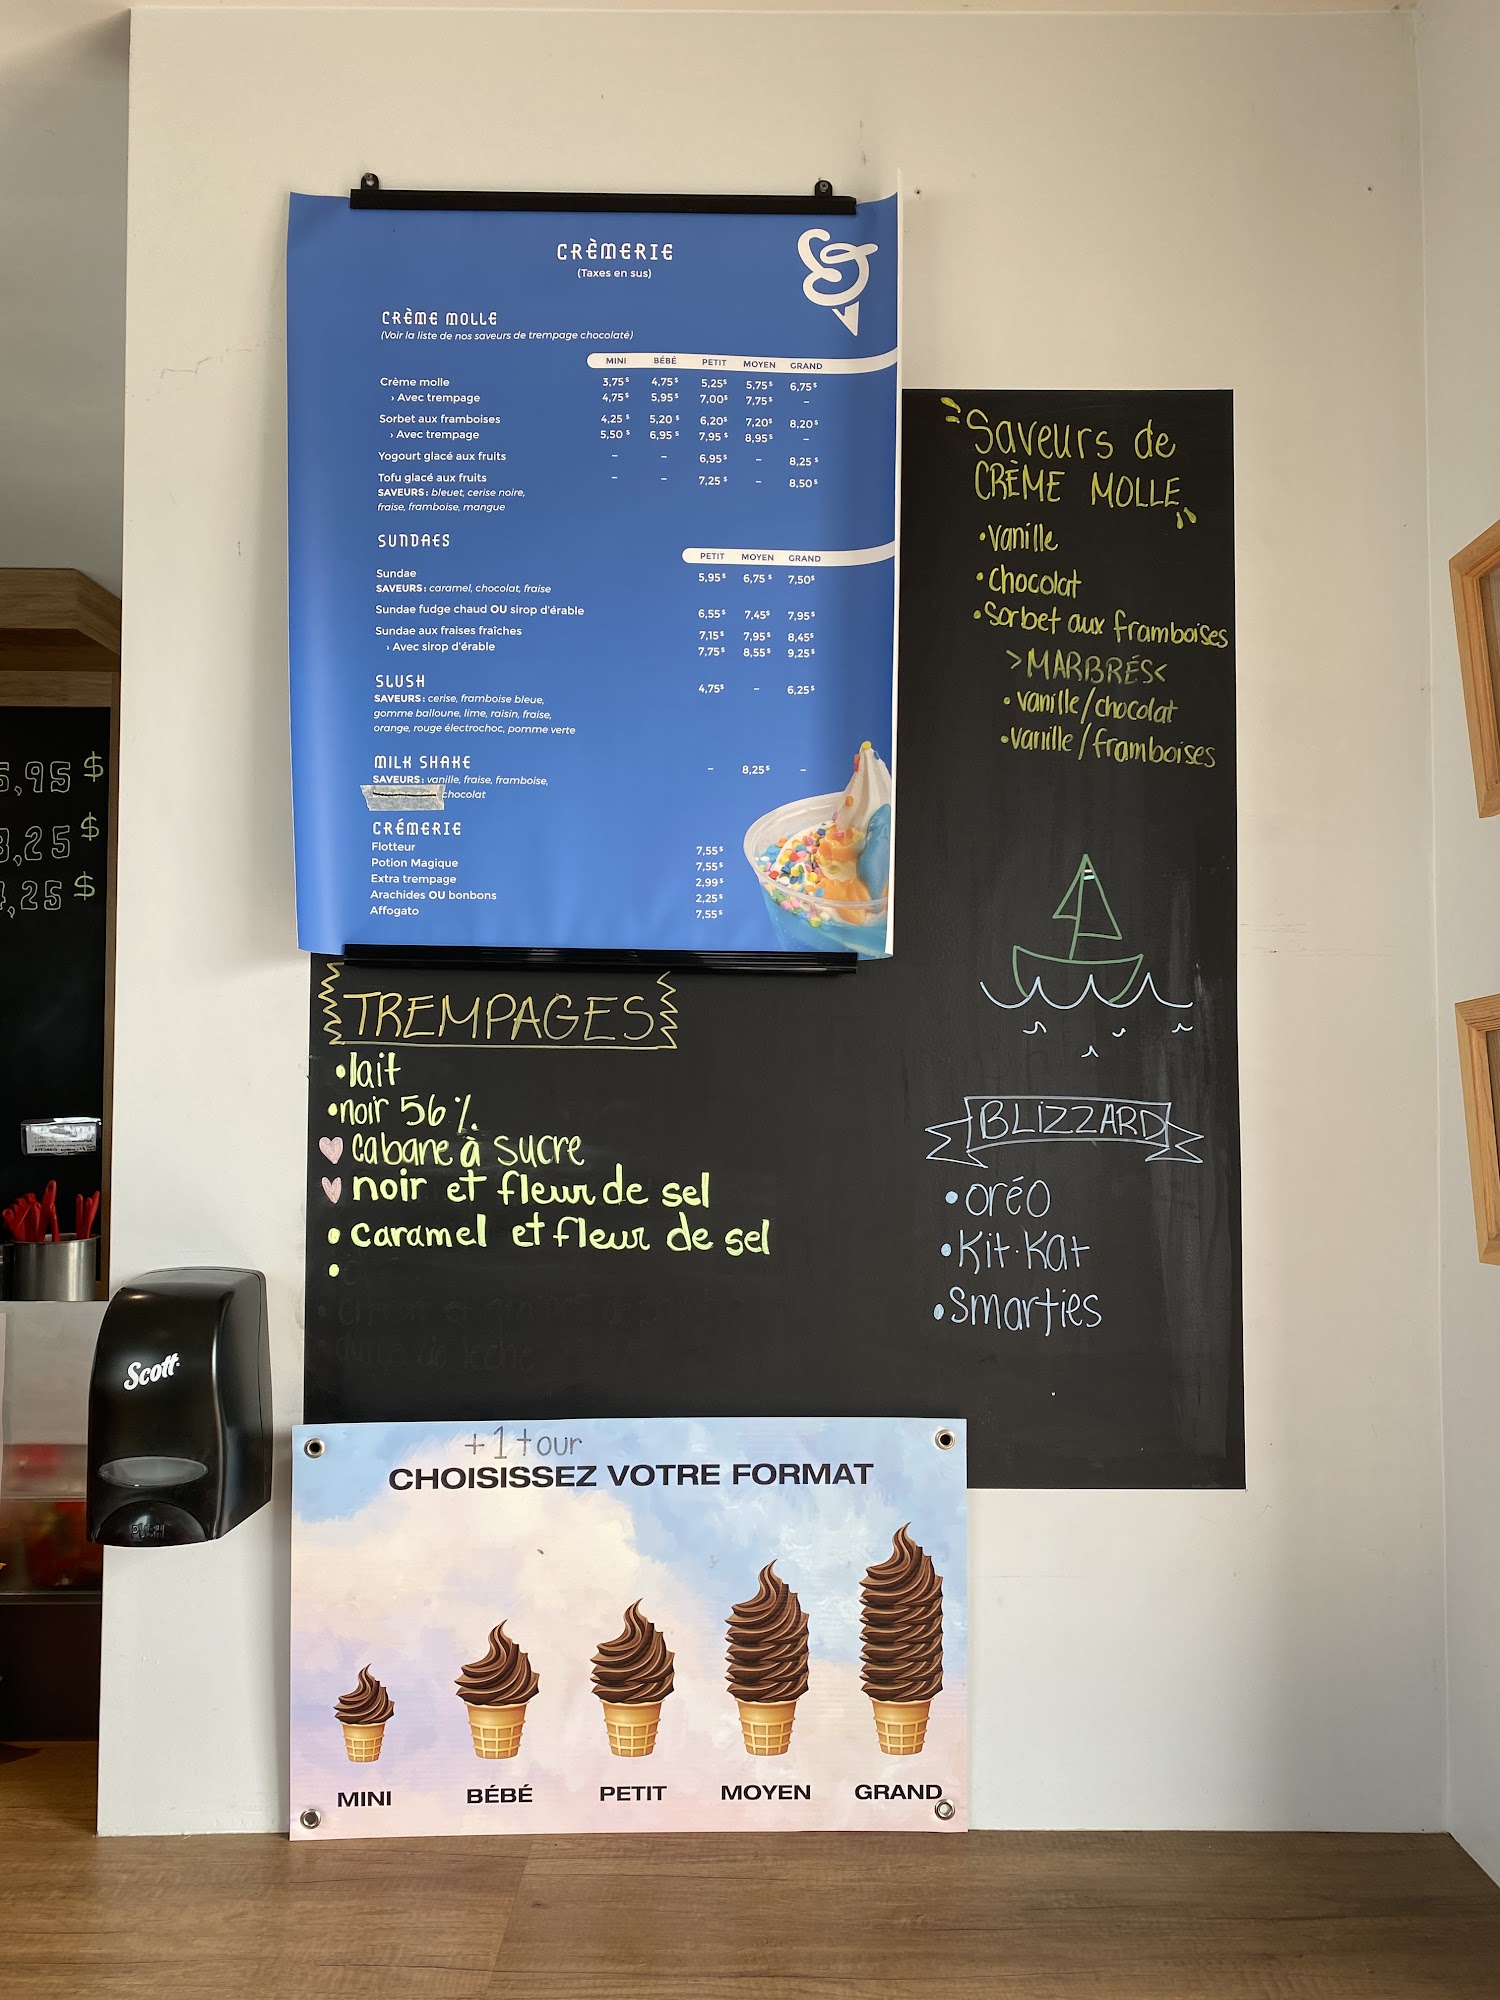 CRÈMERIE
(Taxes en sus)
CRÈME MOLLE
(Voir la liste de nos saveurs de trempage chocolaté)
MINI BÉBÉ PETIT MOYEN GRAND
Crème molle 3,75$ 4,75$ 5,25$ 5,75$ 6,75$
› Avec trempage 4,75$ 5,95$ 7,00$ 7,75$ –
Sorbet aux framboises 4,25$ 5,20$ 6,20$ 7,20$ 8,20$
› Avec trempage 5,50$ 6,95$ 7,95$ 8,95$ –
Yogourt glacé aux fruits – – 6,95$ – 8,25$
Tofu glacé aux fruits – – 7,25$ – 8,50$
SAVEURS : bleuet, cerise noire,
fraise, framboise, mangue
SUNDAES
PETIT MOYEN GRAND
Sundae 5,95$ 6,75$ 7,50$
SAVEURS : caramel, chocolat, fraise
Sundae fudge chaud OU sirop d'érable 6,55$ 7,45$ 7,95$
Sundae aux fraises fraîches 7,15$ 7,95$ 8,45$
› Avec sirop d'érable 7,75$ 8,55$ 9,25$
SLUSH 4,75$ – 6,25$
SAVEURS : cerise, framboise bleue,
gomme balloune, lime, raisin, fraise,
orange, rouge électrochoc, pomme verte
MILK SHAKE – 8,25$ –
SAVEURS : vanille, fraise, framboise,
chocolat
CRÉMERIE
Flotteur 7,55$
Potion Magique 7,55$
Extra trempage 2,99$
Arachides OU bonbons 2,25$
Affogato 7,55$
Saveurs de
CRÈME MOLLE
•vanille
•chocolat
•Sorbet aux framboises
>MARBRÉS<
•vanille/chocolat
•vanille/framboises
5,95$
,25$
,25$
TREMPAGES
•lait
•noir 56%
cabane à sucre
noir et fleur de sel
•caramel et fleur de sel
•
BLIZZARD
•oréo
•Kit·Kat
•Smarties
Scott
PUSH
+1 tour
CHOISISSEZ VOTRE FORMAT
MINI BÉBÉ PETIT MOYEN GRAND